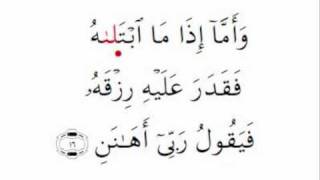 وَأَمَّآ إِذَا مَا ٱبْتَلَىٰهُ
فَقَدَرَ عَلَيْهِ رِزْقَهُۥ
فَيَقُولُ رَبِّىٓ أَهَـٰنَنِ ١٦